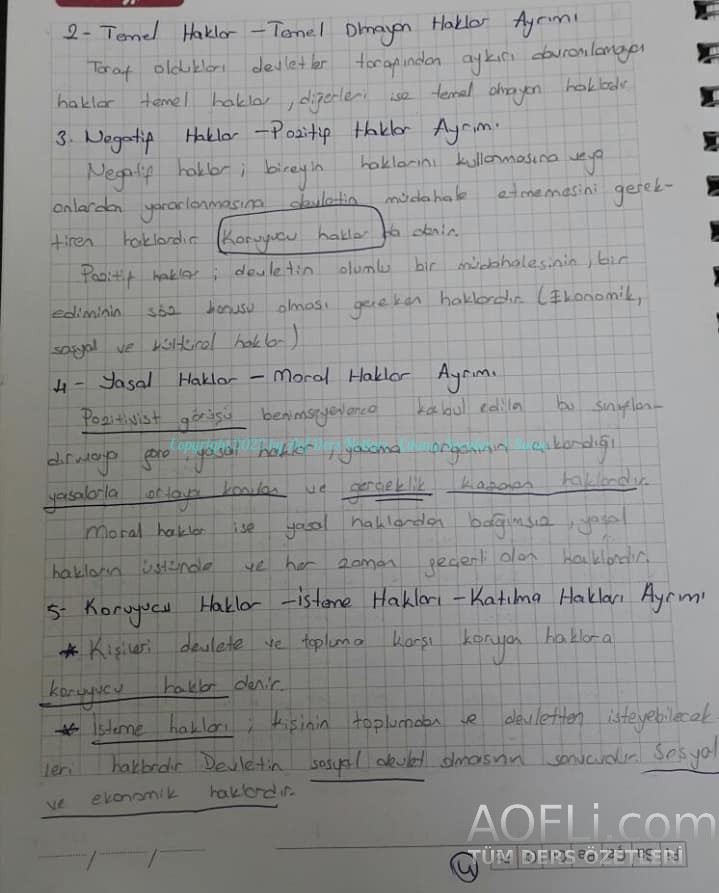 2- Temel Haklar - Temel Olmayan Haklar Ayrımı
Taraf oldukları devletler tarafından aykırı davranılamayan
haklar temel haklar, diğerleri ise temel olmayan haklardır
3. Negatif Haklar - Pozitif Haklar Ayrımı.
Negatif haklar; bireyin haklarını kullanmasına veya
onlardan yararlanmasına devletin müdahale etmemesini gerek-
tiren haklardır. Koruyucu haklar da denir.
Pozitif haklar; devletin olumlu bir müdahalesinin, bir
ediminin söz konusu olması gereken haklardır. (Ekonomik,
sosyal ve kültürel haklar)
4- Yasal Haklar - Moral Haklar Ayrımı.
Pozitivist görüşü benimseyenlerce kabul edilen bu sınıflan-
dırmaya göre yasal haklar, yasama organının çıkardığı
yasalarla ortaya konulan ve gerçeklik kazanan haklardır.
Moral haklar ise yasal haklardan bağımsız, yasal
hakların üstünde ve her zaman geçerli olan haklardır.
5- Koruyucu Haklar - isteme Hakları - Katılma Hakları Ayrımı
* Kişileri devlete ve topluma karşı koruyan haklara
koruyucu haklar denir.
* İsteme hakları; kişinin toplumdan ve devletten isteyebilecek
leri haklardır Devletin sosyal devlet olmasının sonucudur. Sosyal
ve ekonomik haklardır.
4
AOFLi.com
TÜM DERS ÖZETLERİ